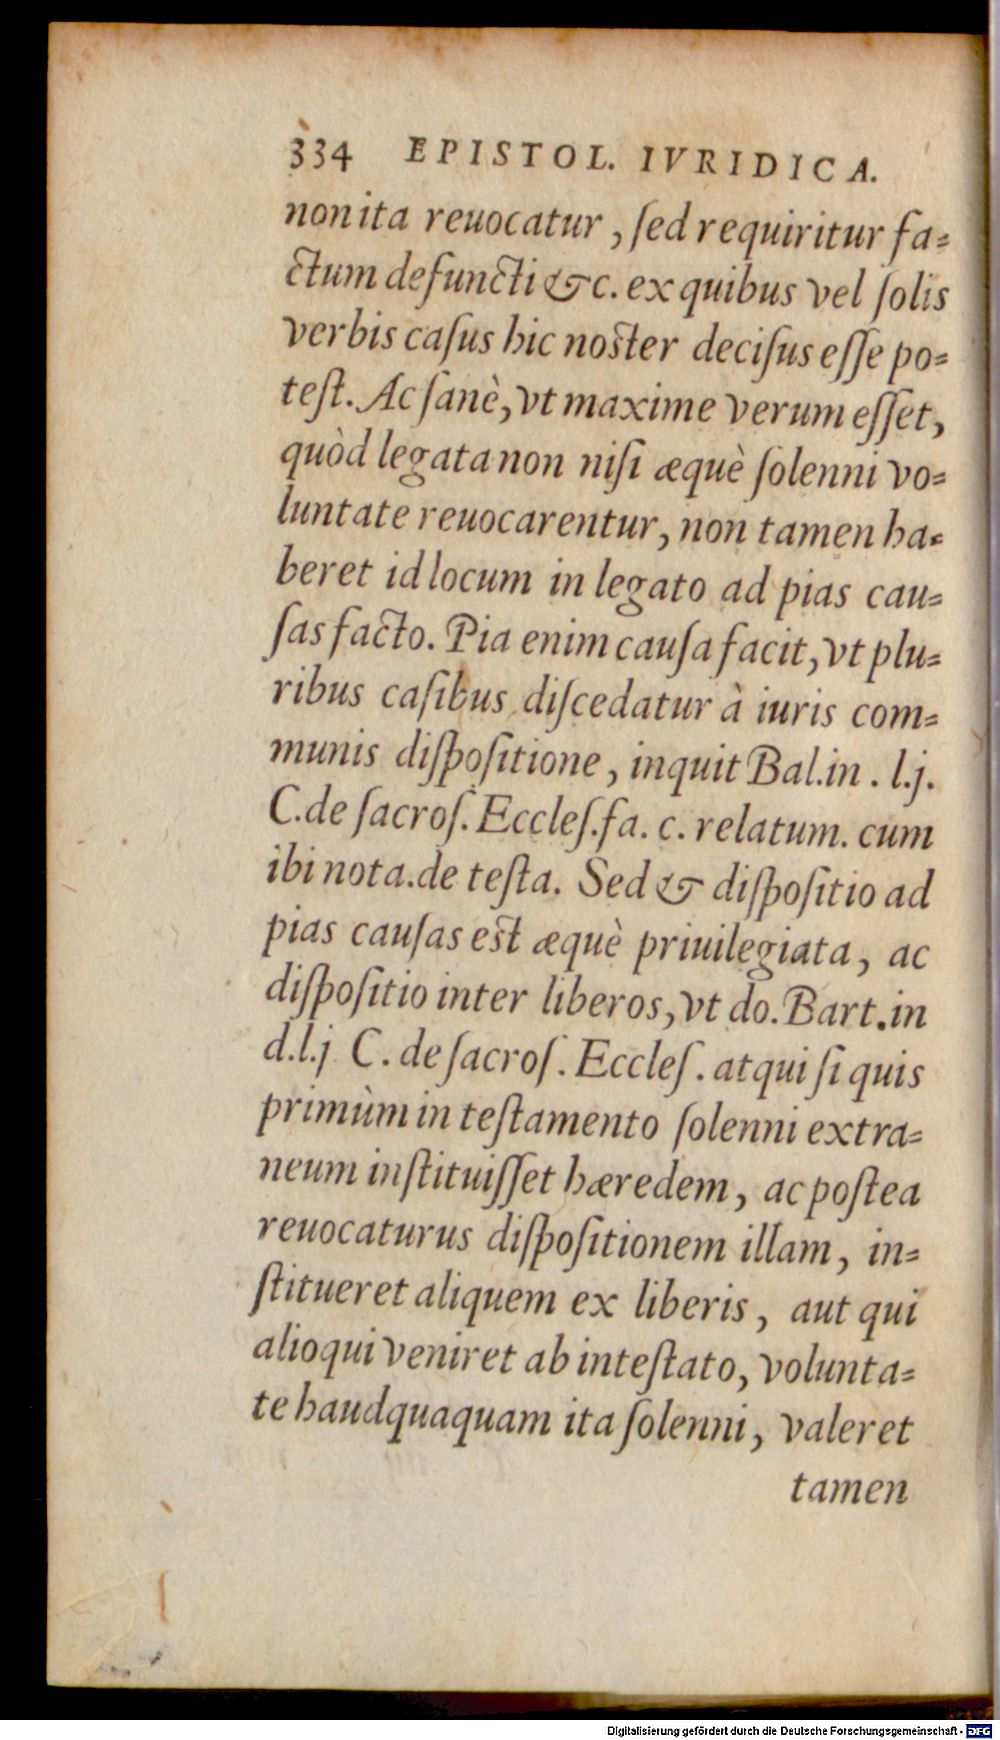 334 EPISTOL. IVRIDICA.
non ita reuocatur, ſed requiritur fa=
ctum defuncti &c. ex quibus vel ſolis
verbis caſus hic noster deciſus eſſe po=
teſt. Ac ſanè, vt maxime verum eſſet,
quòd legata non niſi æquè ſolenni vo=
luntate reuocarentur, non tamen ha=
beret id locum in legato ad pias cau=
ſas facto. Pia enim cauſa facit, vt plu=
ribus caſibus diſcedatur à iuris com=
munis diſpoſitione, inquit Bal.in. l.j.
C.de ſacroſ. Eccleſ.fa. c. relatum. cum
ibi nota.de teſta. Sed & diſpoſitio ad
pias cauſas est æquè priuilegiata, ac
diſpoſitio inter liberos, vt do. Bart.in
d.l.j C. de ſacroſ. Eccleſ. atqui ſi quis
primùm in teſtamento ſolenni extra=
neum inſtituiſſet hæredem, ac poſtea
reuocaturus diſpoſitionem illam, in=
ſtitueret aliquem ex liberis, aut qui
alioqui veniret ab inteſtato, volunta=
te haudquaquam ita ſolenni, valeret
tamen
Digitalisierung gefördert durch die Deutsche Forschungsgemeinschaft - DFG